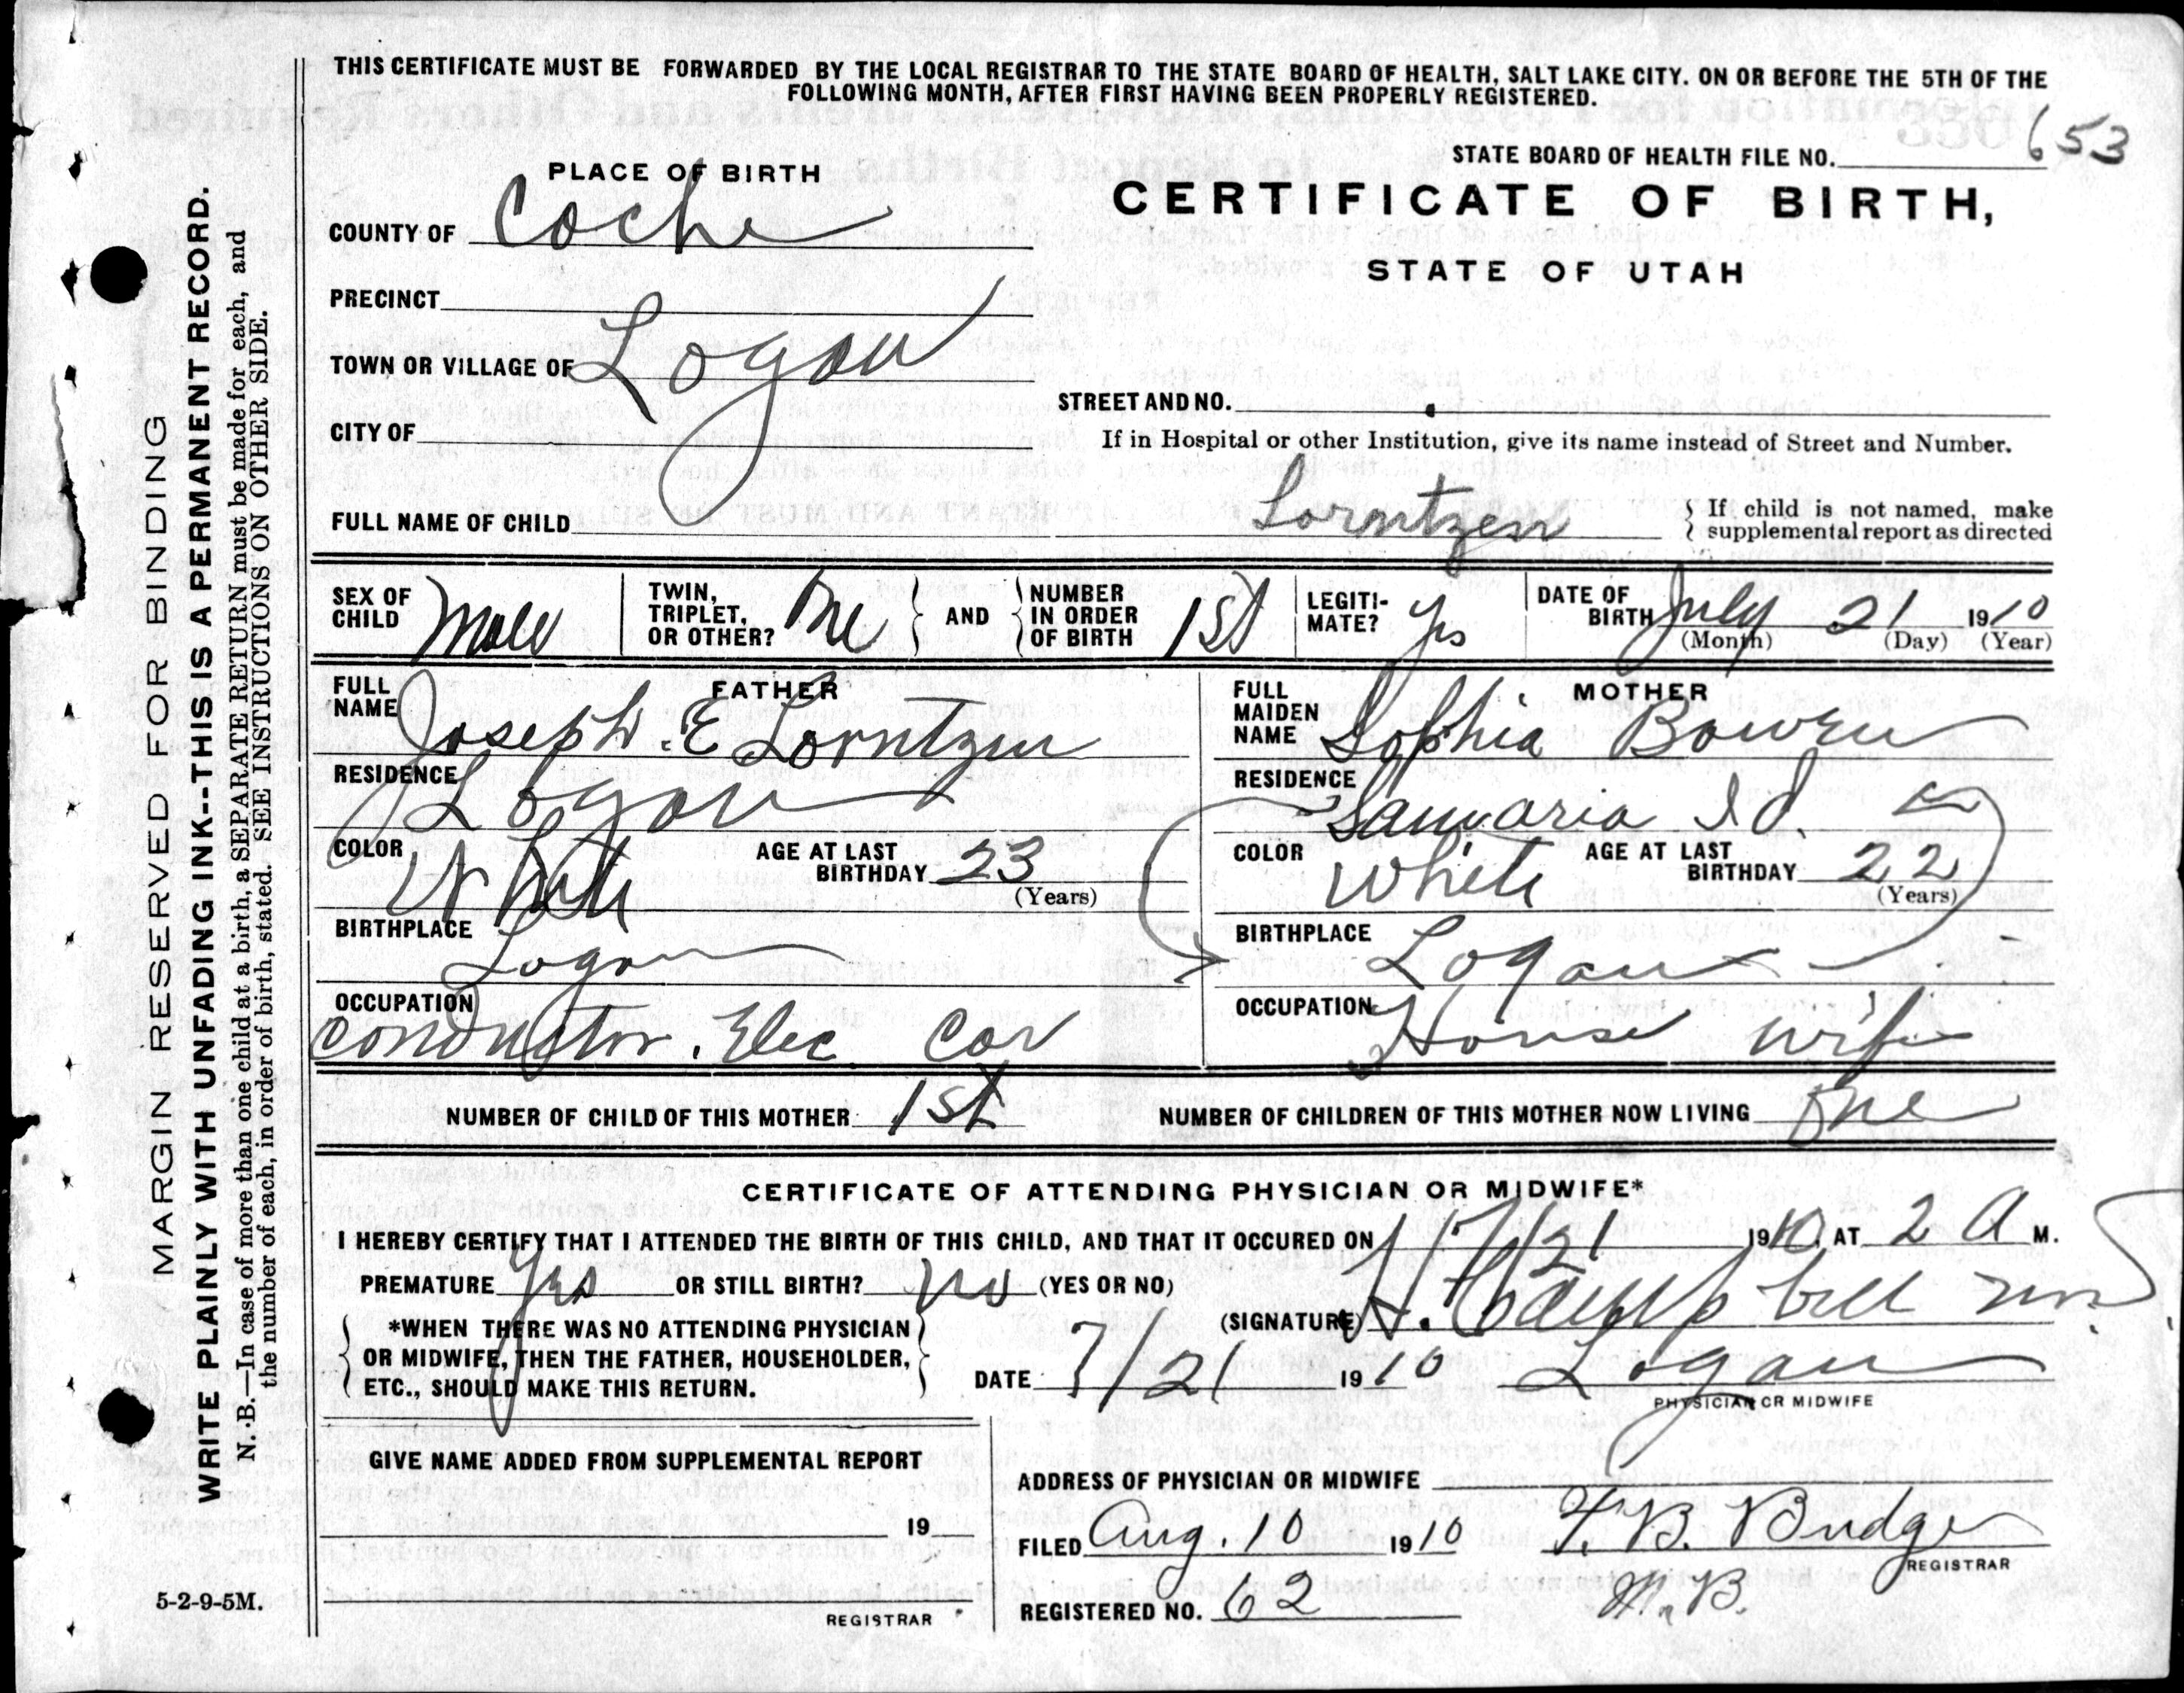 THIS CERTIFICATE MUST BE FORWARDED BY THE LOCAL REGISTRAR TO THE STATE BOARD OF HEALTH, SALT LAKE CITY. ON OR BEFORE THE 5TH OF THE
FOLLOWING MONTH, AFTER FIRST HAVING BEEN PROPERLY REGISTERED.
STATE BOARD OF HEALTH FILE NO. 653
PLACE OF BIRTH
CERTIFICATE OF BIRTH,
STATE OF UTAH
COUNTY OF Cache
PRECINCT
TOWN OR VILLAGE OF Logan
STREET AND NO.
CITY OF
If in Hospital or other Institution, give its name instead of Street and Number.
FULL NAME OF CHILD Lorntzen
If child is not named, make
supplemental report as directed
SEX OF CHILD Male
TWIN, TRIPLET, OR OTHER? One
AND
NUMBER IN ORDER OF BIRTH 1st
LEGITI-MATE? Yes
DATE OF BIRTH July 21 1910
(Month) (Day) (Year)
FATHER
FULL NAME Joseph. E Lorntzen
RESIDENCE Logan
COLOR White
AGE AT LAST BIRTHDAY 23
(Years)
BIRTHPLACE Logan
OCCUPATION Conductor. Elec Car
MOTHER
FULL MAIDEN NAME Sophia Bowen
RESIDENCE Samaria Id.
COLOR White
AGE AT LAST BIRTHDAY 22
(Years)
BIRTHPLACE Logan
OCCUPATION House wife
NUMBER OF CHILD OF THIS MOTHER 1st
NUMBER OF CHILDREN OF THIS MOTHER NOW LIVING One
CERTIFICATE OF ATTENDING PHYSICIAN OR MIDWIFE*
I HEREBY CERTIFY THAT I ATTENDED THE BIRTH OF THIS CHILD, AND THAT IT OCCURED ON 7/21 1910, AT 2 A M.
PREMATURE Yes OR STILL BIRTH? No (YES OR NO)
(SIGNATURE) Campbell
*WHEN THERE WAS NO ATTENDING PHYSICIAN
OR MIDWIFE, THEN THE FATHER, HOUSEHOLDER,
ETC., SHOULD MAKE THIS RETURN.
DATE 7/21 1910 Logan
PHYSICIAN OR MIDWIFE
GIVE NAME ADDED FROM SUPPLEMENTAL REPORT
19
REGISTRAR
ADDRESS OF PHYSICIAN OR MIDWIFE
FILED Aug. 10 1910 T. B. Budge
REGISTRAR
REGISTERED NO. 62
5-2-9-5M.
MARGIN RESERVED FOR BINDING
WRITE PLAINLY WITH UNFADING INK--THIS IS A PERMANENT RECORD.
N. B.—In case of more than one child at a birth, a SEPARATE RETURN must be made for each, and
the number of each, in order of birth, stated. SEE INSTRUCTIONS ON OTHER SIDE.